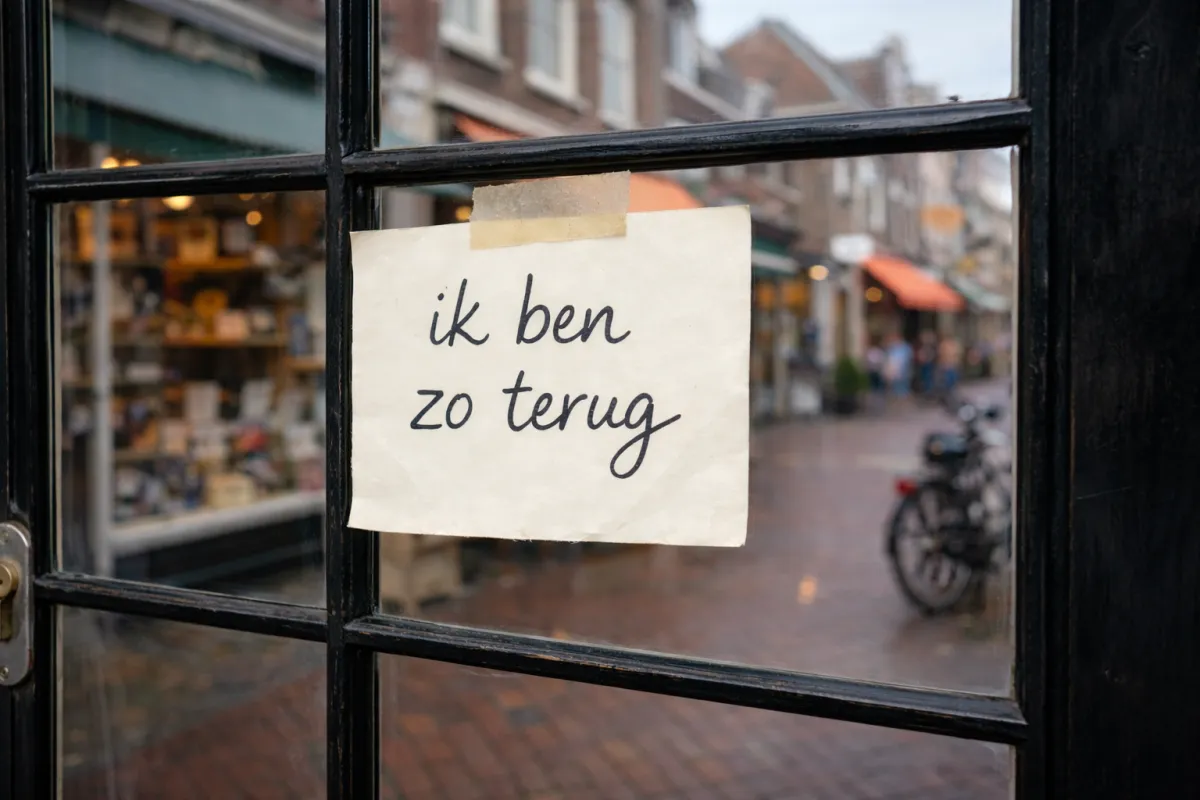 ik ben
zo terug